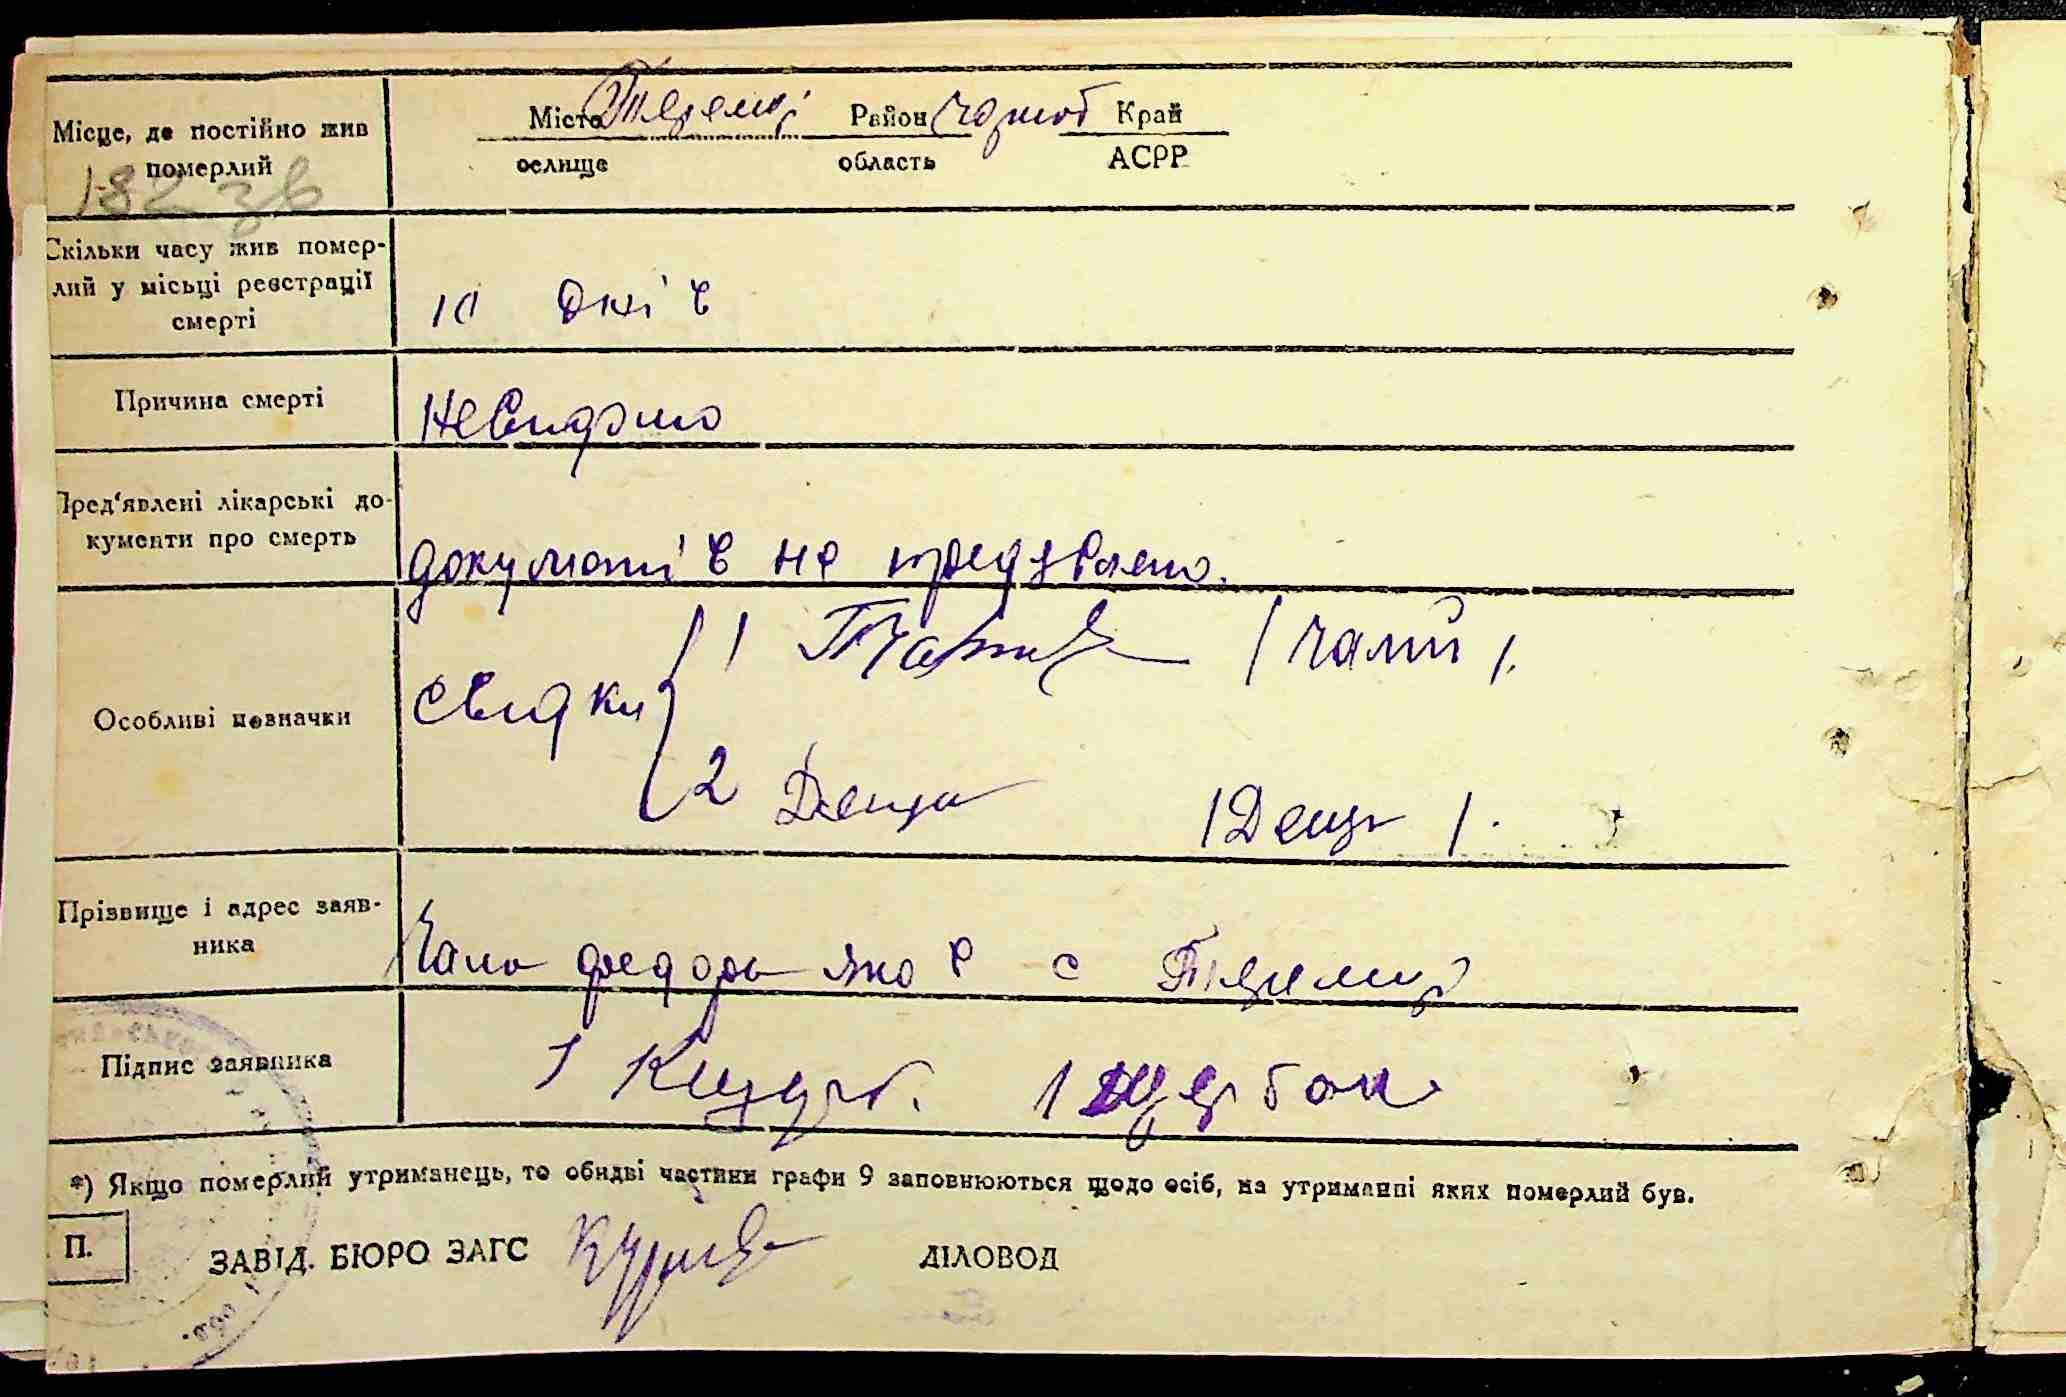 Місце, де постійно жив
померлий
Місто Теремці Район Чорноб Край
оселище область АСРР
Скільки часу жив помер-
лий у місьці реєстрації
смерті
10 днів
Причина смерті
Невидомо
Пред'явлені лікарські до-
кументи про смерть
документів не предявлено.
Особливі позначки
Свидки
1 (Чалий).
2 Деща (Деща).
Прізвище і адрес заяв-
ника
федора яков с Теремці
Підпис заявника
*) Якщо померлий утриманець, то обидві частини графи 9 заповнюються щодо осіб, на утриманні яких померлий був.
П.
ЗАВІД. БЮРО ЗАГС ДІЛОВОД